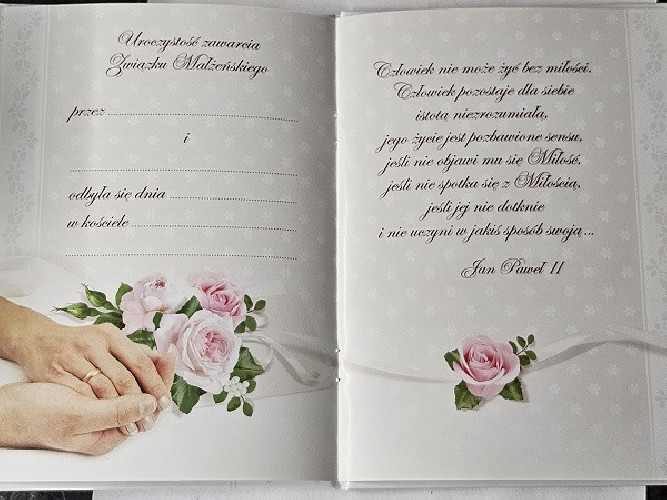 Uroczystość zawarcia
Związku Małżeńskiego
przez
i
odbyła się dnia
w kościele
Człowiek nie może żyć bez miłości.
Człowiek pozostaje dla siebie
istotą niezrozumiałą,
jego życie jest pozbawione sensu,
jeśli nie objawi mu się Miłość,
jeśli nie spotka się z Miłością,
jeśli jej nie dotknie
i nie uczyni w jakiś sposób swoją...
Jan Paweł II